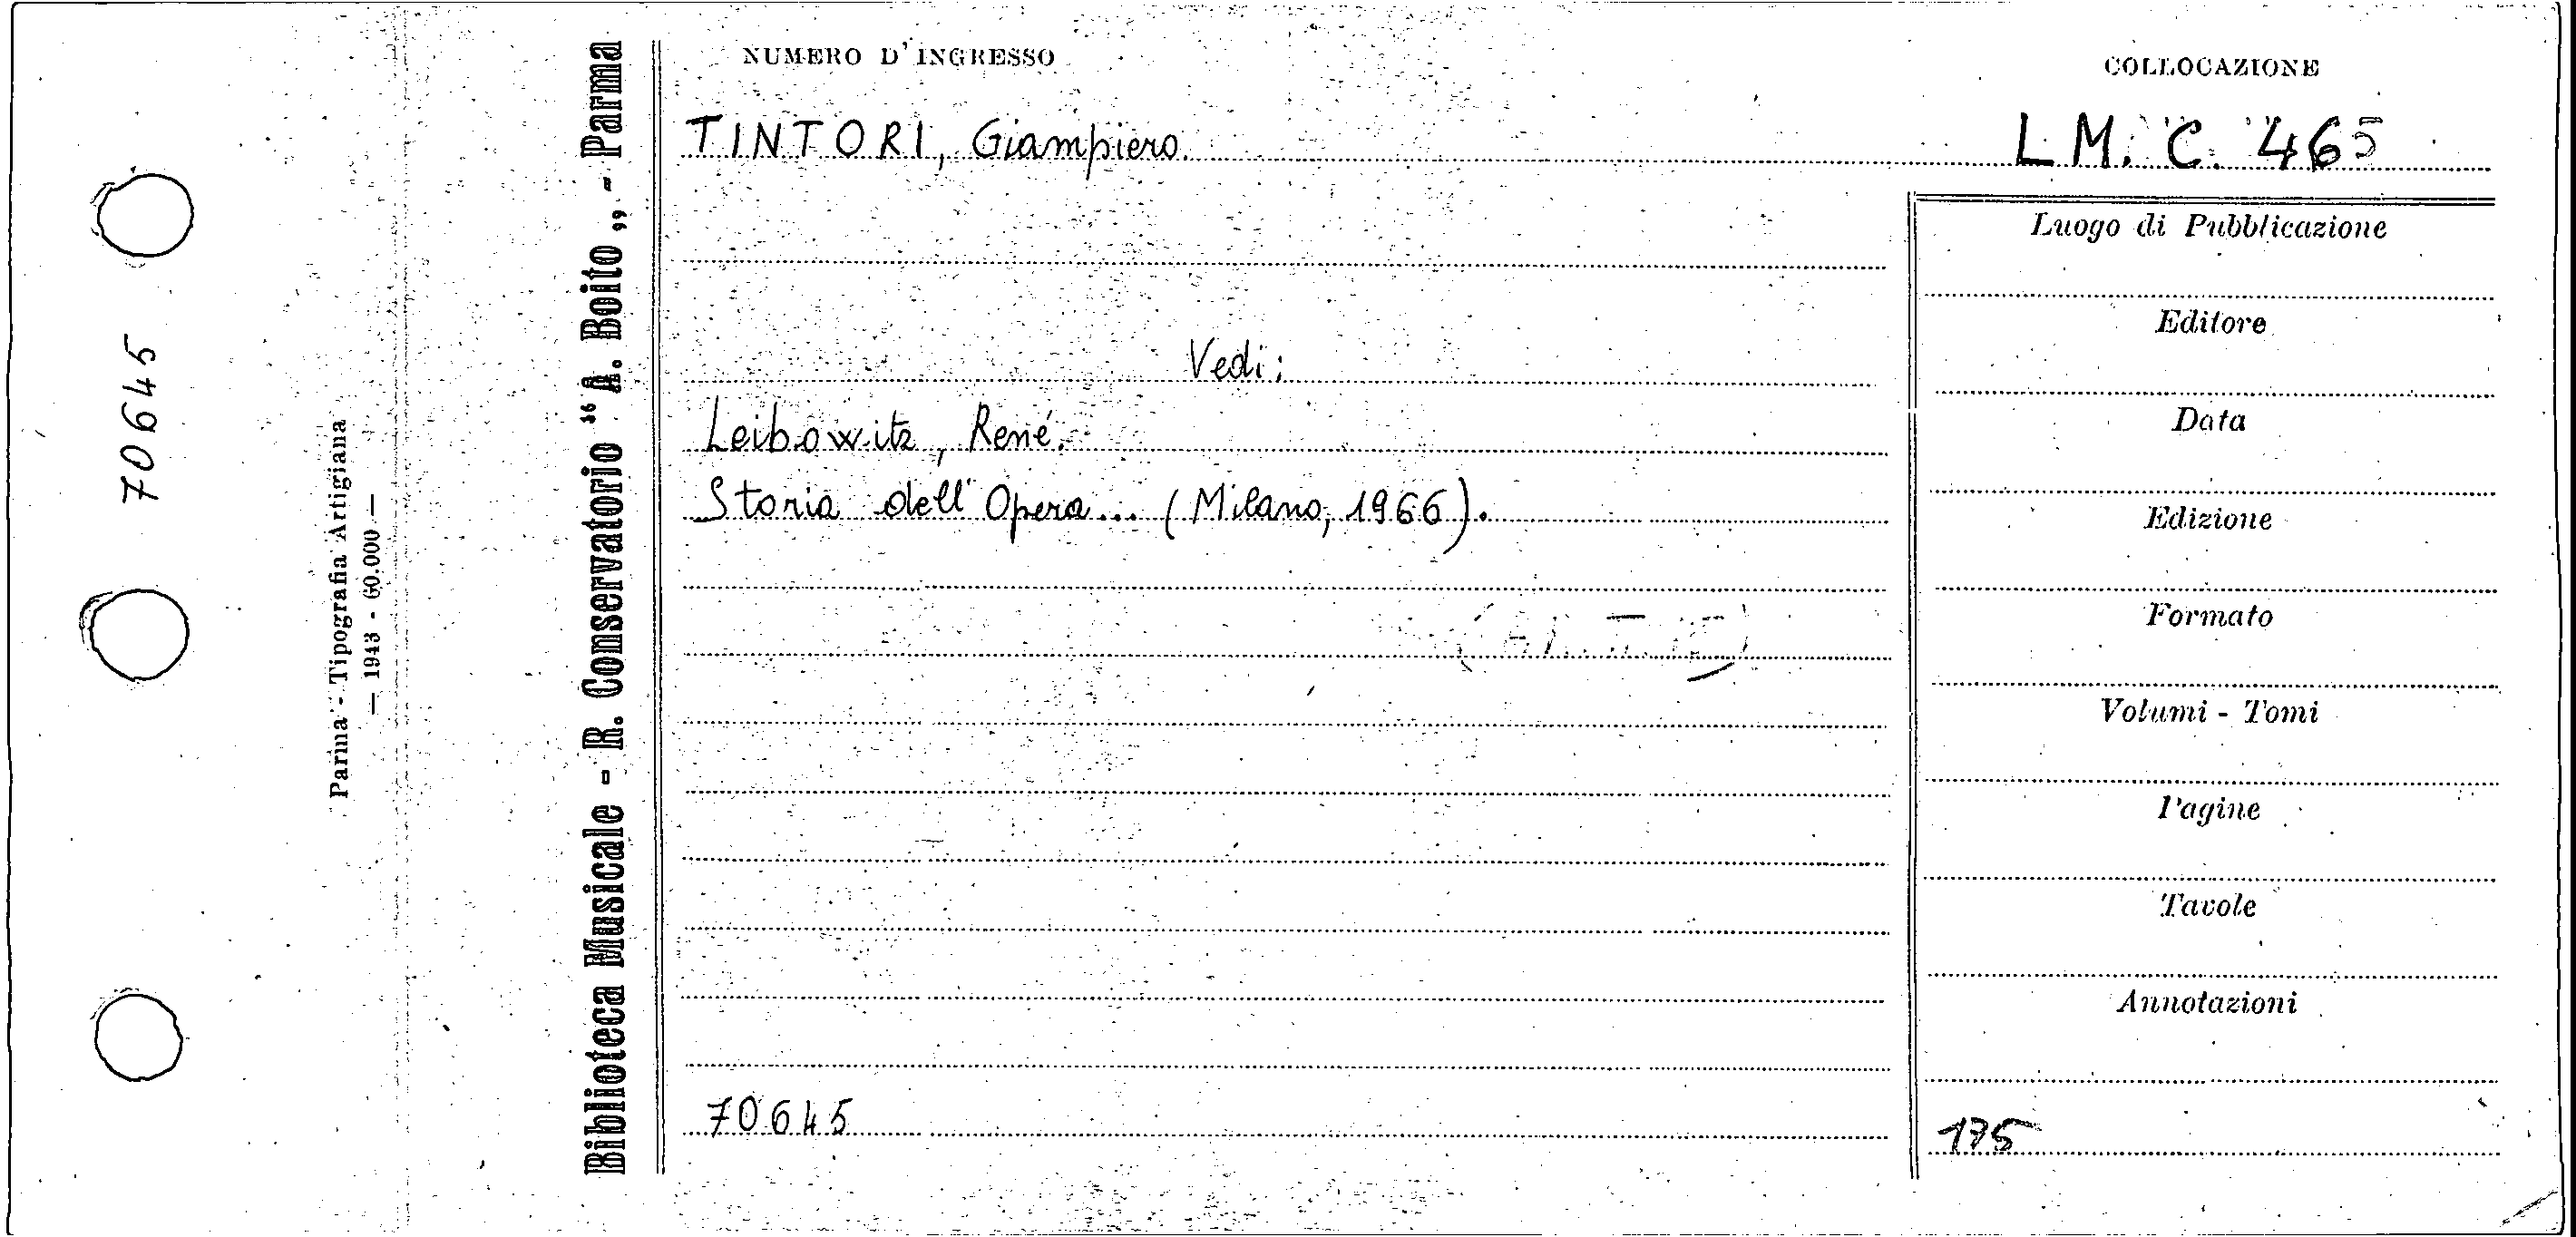 NUMERO D'INGRESSO
COLLOCAZIONE
TINTORI, Giampiero.
L M. C. 465
Vedi:
Leibowitz, René.
Storia dell'Opera... (Milano, 1966).
70645
Luogo di Pubblicazione
Editore
Data
Edizione
Formato
Volumi - Tomi
Pagine
Tavole
Annotazioni
175
Biblioteca Musicale - R. Conservatorio “A. Boito„ - Parma
Parma - Tipografia Artigiana
— 1943 - 60.000 —
70645